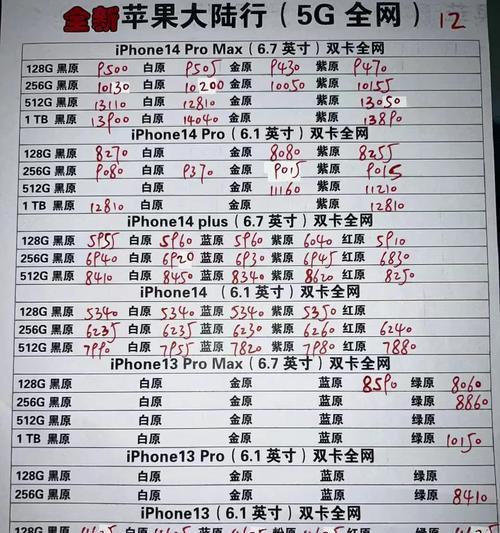 全新苹果大陆行（5G 全网） 12
iPhone14 Pro Max（6.7 英寸）双卡全网
128G 黑原 9500 白原 9505 金原 9430 紫原 9470
256G 黑原 10130 白原 10200 金原 10050 紫原 10155
512G 黑原 13110 白原 12810 金原 紫原 13050
1 TB 黑原 13900 白原 14040 金原 紫原 13890
iPhone14 Pro（6.1 英寸）双卡全网
128G 黑原 8270 白原 金原 8080 紫原 8255
256G 黑原 9080 白原 9370 金原 9015 紫原 9015
512G 黑原 白原 金原 11160 紫原 11210
1 TB 黑原 12810 白原 金原 紫原 12810
iPhone14 plus（6.7 英寸）双卡全网
128G 黑原 5955 白原 5960 蓝原 5960 紫原 6040 红原 5910
256G 黑原 6940 白原 6920 蓝原 6930 紫原 6945 红原 6830
512G 黑原 8410 白原 8450 蓝原 8340 紫原 8620 红原 8250
iPhone14 （6.1 英寸）双卡全网
128G 黑原 5340 白原 5340 蓝原 5340 紫原 5350 红原
256G 黑原 6235 白原 6235 蓝原 6230 紫原 6260 红原 6240
512G 黑原 7990 白原 7955 蓝原 7820 紫原 7980 红原 7880
iPhone13 Pro Max（6.7 英寸）双卡全网
128G 黑原 白原 金原 蓝原 8590 绿原 8060
256G 黑原 白原 金原 蓝原 绿原 8860
512G 黑原 白原 金原 蓝原 绿原
1 TB 黑原 白原 金原 蓝原 绿原 10150
iPhone13 Pro（6.1 英寸）双卡全网
128G 黑原 白原 金原 蓝原 绿原
256G 黑原 白原 金原 蓝原 绿原 8410
iPhone13（6.1 英寸）双卡全网
128G 黑原 白原 蓝原 粉原 红原 绿原